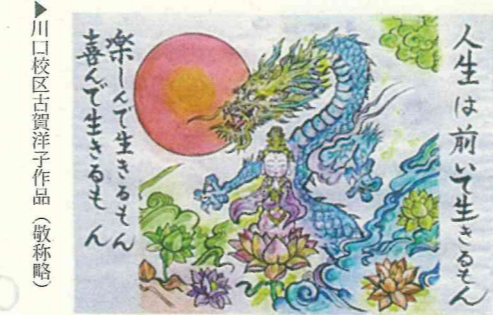 人生は前いて生きるもん
楽しんで生きるもん
喜んで生きるもん
▶川口校区古賀洋子作品（敬称略）